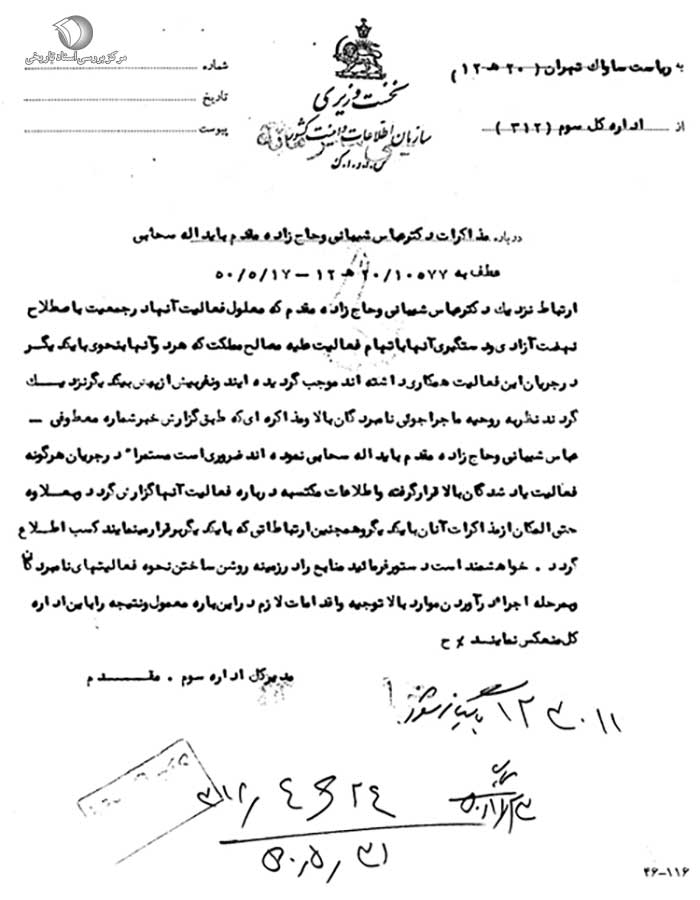 مرکز بررسی اسناد تاریخی
به ریاست ساواک تهران (۲۰ هـ ۱۲)
از اداره کل سوم (۳۱۲)
نخست وزیری
سازمان اطلاعات و امنیت کشور
س.ا.و.ا.ک
شماره
تاریخ
پیوست
درباره مذاکرات دکتر عباس شیبانی و حاج زاده مقدم با یداله سحابی
عطف به ۲۰/۱۰۵۷۷ هـ ۱۲ – ۵۰/۵/۱۷
ارتباط نزدیک دکتر عباس شیبانی و حاج زاده مقدم که معلول فعالیت آنها در جمعیت باصطلاح
نهضت آزادی و دستگیری آنها باتهام فعالیت علیه مصالح مملکت که هر دو آنها بنحوی با یکدیگر
در جریان این فعالیت همکاری داشته اند موجب گردیده ایندو نفر بیش از پیش بیکدیگر نزدیک
گردند نظر به روحیه ماجراجوئی نامبردگان بالا و مذاکره ای که طبق گزارش خبر شماره معطوفی –
عباس شیبانی و حاج زاده مقدم با یداله سحابی نموده اند ضروری است مستمراً در جریان هرگونه
فعالیت یاد شدگان بالا قرار گرفته و اطلاعات مکتسبه درباره فعالیت آنها گزارش گردد و بعلاوه
حتی المکان از مذاکرات آنان با یکدیگر و همچنین ارتباطاتی که با یکدیگر برقرار مینمایند کسب اطلاع
گردد . خواهشمند است دستور فرمائید منابع را در زمینه روشن ساختن نحوه فعالیتهای نامبردگان
و بمرحله اجراء در آوردن موارد بالا توجیه و اقدامات لازم در این باره معمول و نتیجه را باین اداره
کل منعکس نمایند ٪ ح
مدیرکل اداره سوم . مقدم
۳۱۲
۵۰/۵/۳۱
۴۶-۱۱۶